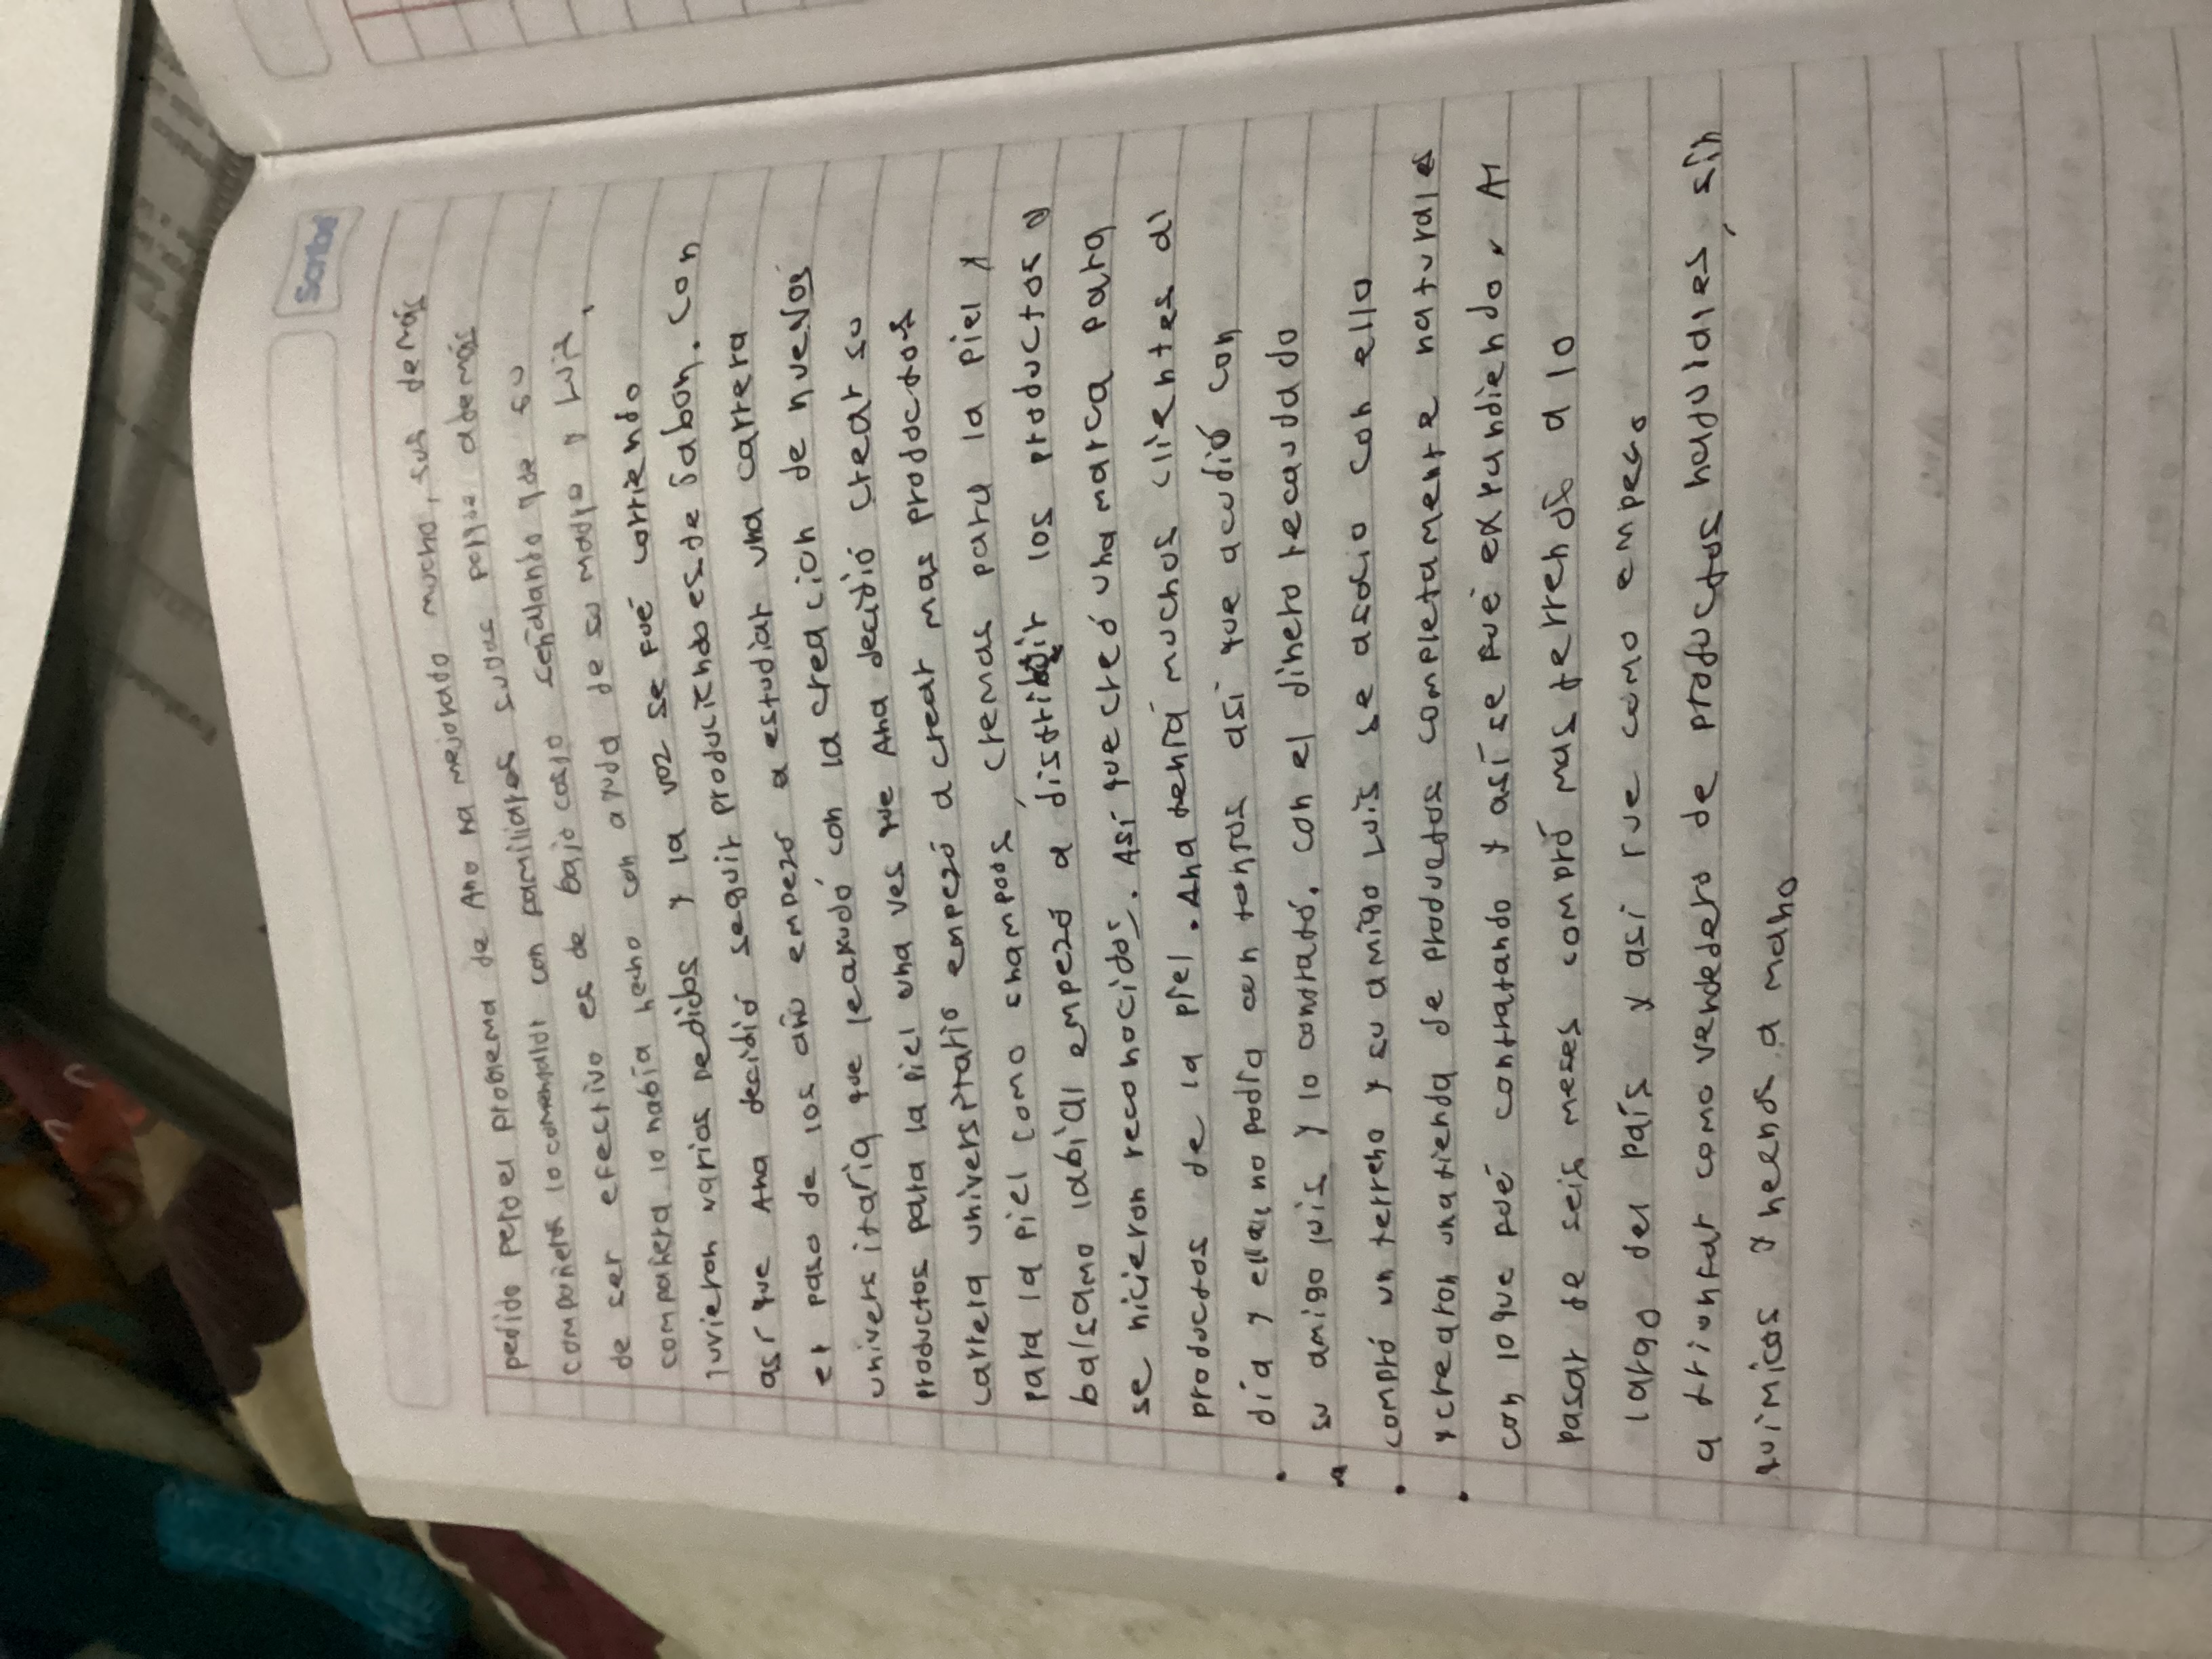 Scribe
pedido pero el problema de Ana ha mejorado mucho, sus demás
compañeros lo comenzaron con familiares suyos además
de ser efectivo es de bajo costo señalando que su
compañera lo había hecho con ayuda de su madre y Luis,
tuvieron varios pedidos y la voz se fué corriendo
así que Ana decidió seguir produciendo este Sabon. Con
el paso de los año empezo a estudiar una carrera
universitaria que le ayudó con la creacion de nuevos
productos para la piel una ves que Ana decidió crear su
carrera universitario empezó a crear mas productos
para la piel como shampoos, cremas para la piel y
balsamo labial empezó a distribuir los productos y
se hicieron reconocidos. Así que creó una marca para
productos de la piel. Ana tenía muchos clientes al
día y ella no podía con tantos así que acudió con
su amigo luis y lo contrató. con el dinero recaudado
compró un terreno y su amigo Luis se asocio con ella
y crearon una tienda de productos completamente natural
con lo que fué contratando y así se fué expandiendo. Al
pasar de seis meses compró mas terrenos a lo
largo del país y asi fue como empezo
a triunfar como vendedero de productos naturales, sin
quimicos y hechos a mano